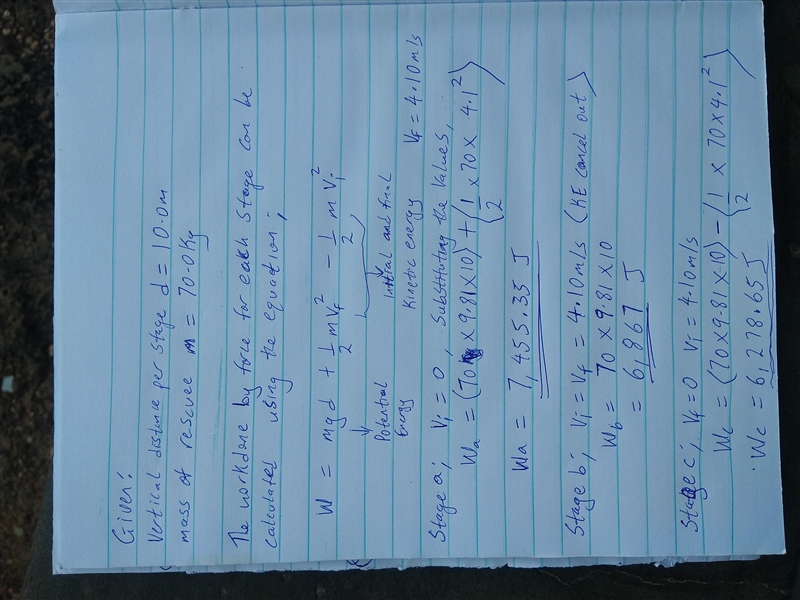 Given:
Vertical distance per stage d = 10.0m
mass of rescuee m = 70.0Kg
The workdone by force for each stage can be
calculated using the equation;
W = mgd + 1/2 mVf² - 1/2 mVi²
Potential Energy
Initial and final Kinetic energy
Stage a; Vi = 0, Vf = 4.10m/s
Substituting the values,
Wa = (70 x 9.81 x 10) + (1/2 x 70 x 4.1²)
Wa = 7,455.35 J
Stage b; Vi = Vf = 4.10m/s (KE cancel out)
Wb = 70 x 9.81 x 10
= 6,867 J
Stage c; Vf = 0 Vi = 4.10m/s
Wc = (70 x 9.81 x 10) - (1/2 x 70 x 4.1²)
Wc = 6,278.65 J